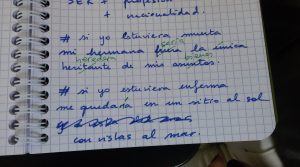 SER + profesión
+ nacionalidad
# si yo estuviera muerta
sería
mi hermana fuera la única
heredera bienes
heritante de mis asuntos.
# si yo estuviera enferma
me quedaría en un sitio al sol
con vistas al mar.